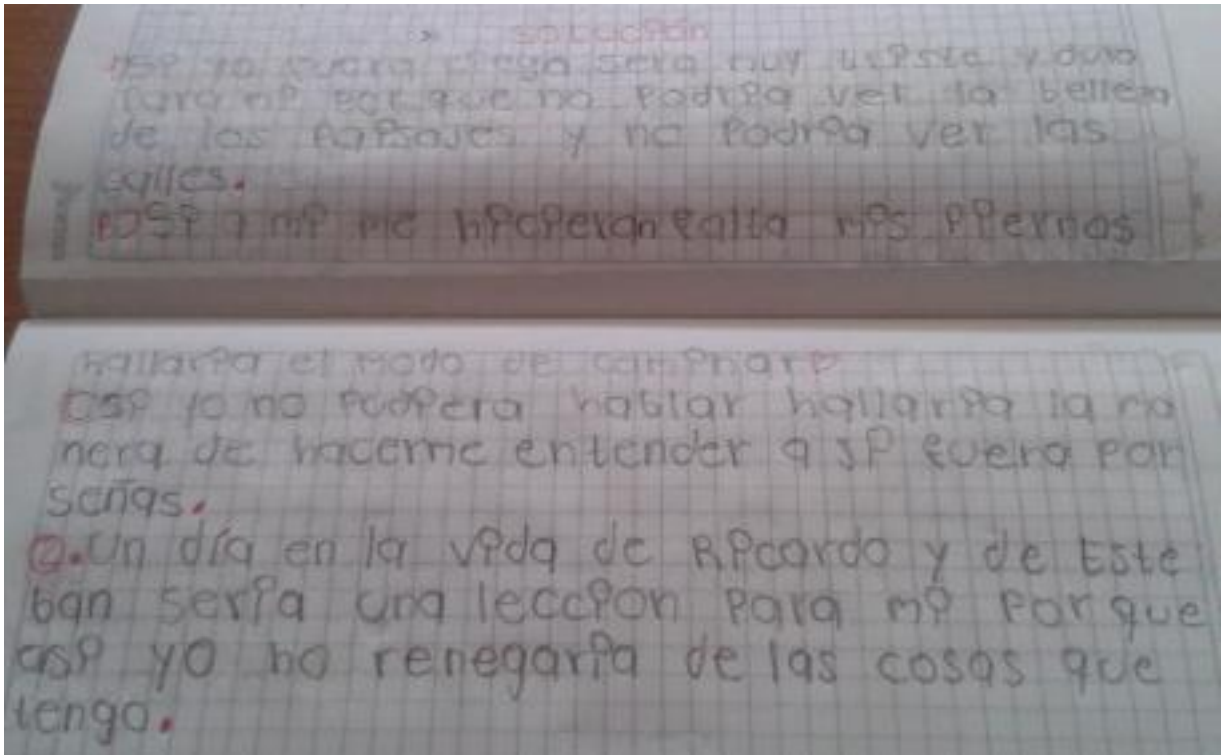 solución
a) Si yo fuera ciega sería muy triste y duro
para mi por que no podría ver la belleza
de los paisajes y no podría ver las
calles.
b) Si a mi me hicieran falta mis piernas
hallaría el modo de caminar
c) Si yo no pudiera hablar hallaría la ma
nera de hacerme entender a si fuera por
señas.
2. Un día en la vida de Ricardo y de Este
ban sería una leccion para mi por que
asi yo no renegaria de las cosas que
tengo.